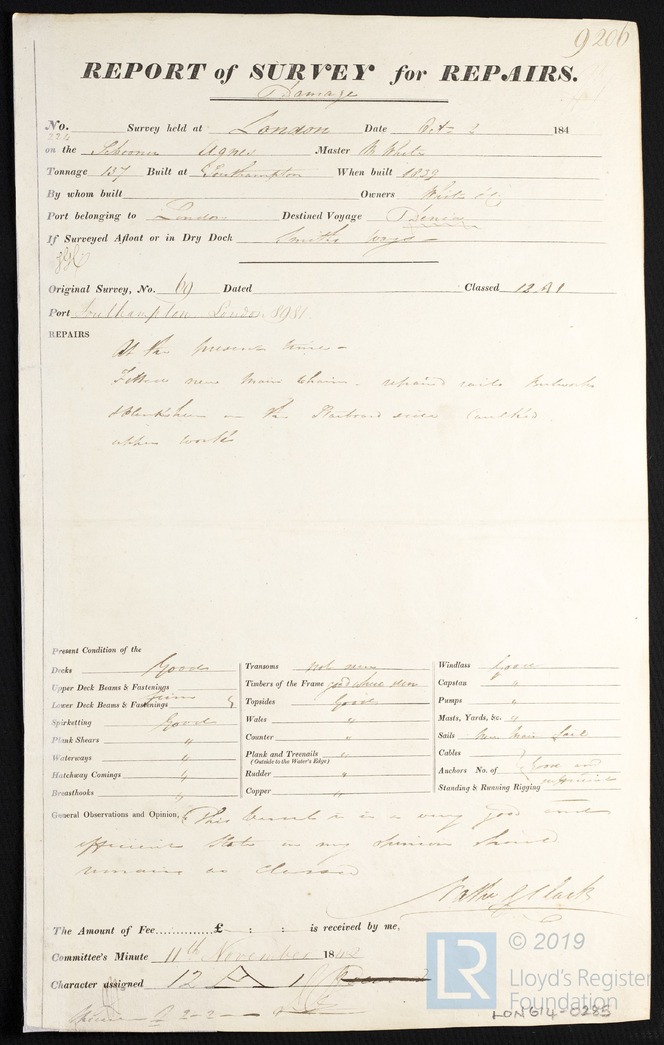 9206
REPORT of SURVEY for REPAIRS.
Damage
No. 224 Survey held at London Date Oct 184
on the Schooner Agnes Master M White
Tonnage 137 Built at Southampton When built 1839
By whom built Owners White & Co
Port belonging to London Destined Voyage Denia
If Surveyed Afloat or in Dry Dock Smiths Ways
Original Survey, No. 69 Dated Classed 12 A1
Port Southampton London 8981
REPAIRS
At the present time -
new Main Chain repaired rails Bulwarks
on the Starboard side Caulked
upper works
Present Condition of the
Decks Good
Upper Deck Beams & Fastenings
Lower Deck Beams & Fastenings
Spirketting Good
Plank Shears "
Waterways "
Hatchway Comings "
Breasthooks "
Transoms not seen
Timbers of the Frame good where seen
Topsides Good
Wales "
Counter "
Plank and Treenails "
(Outside to the Water's Edge)
Rudder "
Copper "
Windlass Good
Capstan "
Pumps "
Masts, Yards, &c. "
Sails New Main Sail
Cables
Anchors No. of Good and
sufficient
Standing & Running Rigging
General Observations and Opinion, This Vessel is in a very good and
efficient state in my opinion should
remain as Classed
Nathl Clark
The Amount of Fee............£ : : is received by me,
Committee's Minute 11th November 1842
Character assigned 12 A 1
© 2019
LR
Lloyd's Register
Foundation
LON614-0285